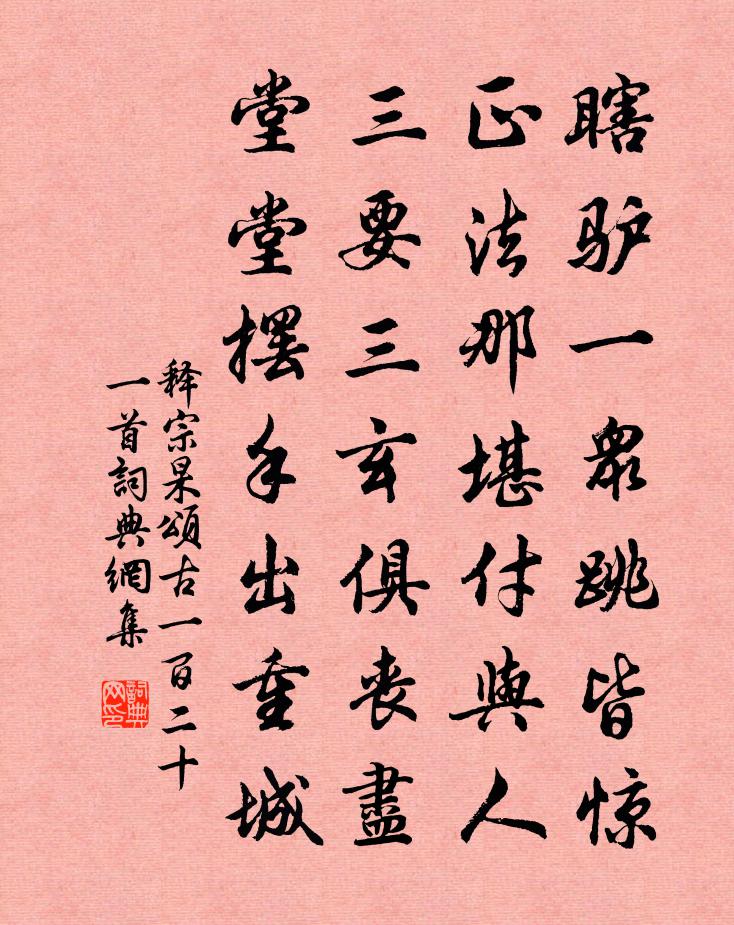 瞎驴一衆跳皆惊
正法那堪付與人
三要三玄俱丧盡
堂堂摆手出重城
释宗杲頌古一百二十
一首詞典網集
詞典网印